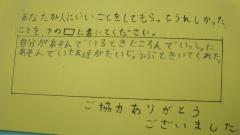 あなたが人にいいことをしてもらってうれしかった
ことを、下の□に書いてください。
自分があそんでいるときにころんでいっしょに
あそんでいた友達がだいじょうぶときいてくれた
ご協力ありがとう
ございました